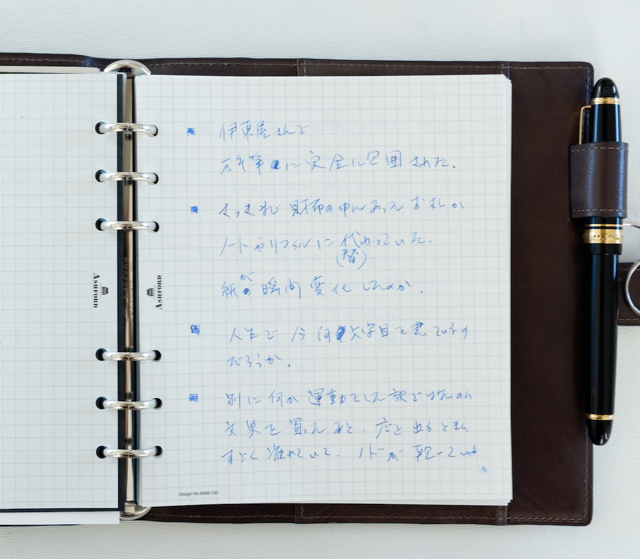 伊東屋さんで
万年筆に完全に包囲された。
気づけば財布の中にあったお札が
ノートやリフィルに代わっていた。
(替)
紙が瞬間変化したのか。
人生で今何文字目を書いているの
だろうか。
別に何か運動をした訳でもないのに
文具を買ったあと、店を出るとき
すごく疲れていて、ノドが乾いている
ASHFORD
ASHFORD
Design No.